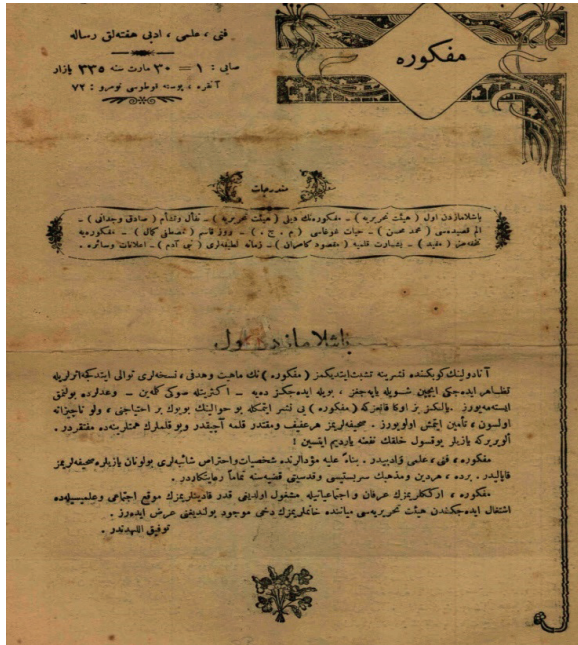 مفكوره
فنی ، علمی ، ادبی هفته‌لق رساله
صایی : ١ = ٣٠ مارت سنه ٣٣٥ پازار
آنقره ، پوسته قوطوسی نومرو : ٧٢
مندرجات
باشلامازدن اول ( هیئت تحریریه ) ـ مفكوره‌نك دیلی ( هیئت تحریریه ) ـ تفأل وتشأم ( صادق وجدانی ) ـ
الم قصیده‌سی ( محمد محسن ) ـ حیات غوغاسی ( م . ج . ) ـ روز قاسم ( مصطفی كمال ) ـ مفكوره‌یه
( مفید ) ـ بشارت قلبیه ( مقصود كامران ) ـ زمانه لطیفه‌لری ( بنی آدم ) ـ اعلانات وسائره .
باشلامازدن اول
آنادولینك كوبكنده نشرینه تشبث ایتدیكمز ( مفكوره ) نك ماهیت وهدفی ، نسخه‌لری توالی ایتدكجه اثرلریله
تظاهر ایده‌جكی ایچین شویله یاپه‌جغز ، بویله ایده‌جكز دیه ـ اكثریتله صوكی كلمه‌ین ـ وعدلرده بولنمق
ایسته‌میورز . یالكز بز اوكا قانعزكه ( مفكوره ) یی نشر ایتمكله بو حوالینك بویوك بر احتیاجنی ، ولو ناچیزانه
اولسون ، تأمین ایتمش اولیورز . صحیفه‌لریمز هر عفیف ومقتدر قلمه آچیقدر وبو قلملرك همتلرینه‌ده مفتقردر .
الویرركه یازیلر یوقسول خلقك نفعنه یاردیم ایتسین !
مفكوره ، فنی ، علمی ، ادبیدر . بناءً علیه مؤدالرنده شخصیات واحتراص شائبه‌لری بولونان یازیلره صحیفه‌لریمز
قاپالیدر . برده ، هر دین ومذهبك سربستیسی وقدسیتی قضیه‌سنه تماماً رعایتكاردر .
مفكوره ، ارككلریمزك عرفان واجتماعیاتیله مشغول اولدیغی قدر قادینلریمزك موقع اجتماعی وعلمیسیله‌ده
اشتغال ایده‌جكندن هیئت تحریریه‌سی میاننده خانملریمزك دخی موجود بولندیغنی عرض ایدەرز .
توفیق اللهدندر .